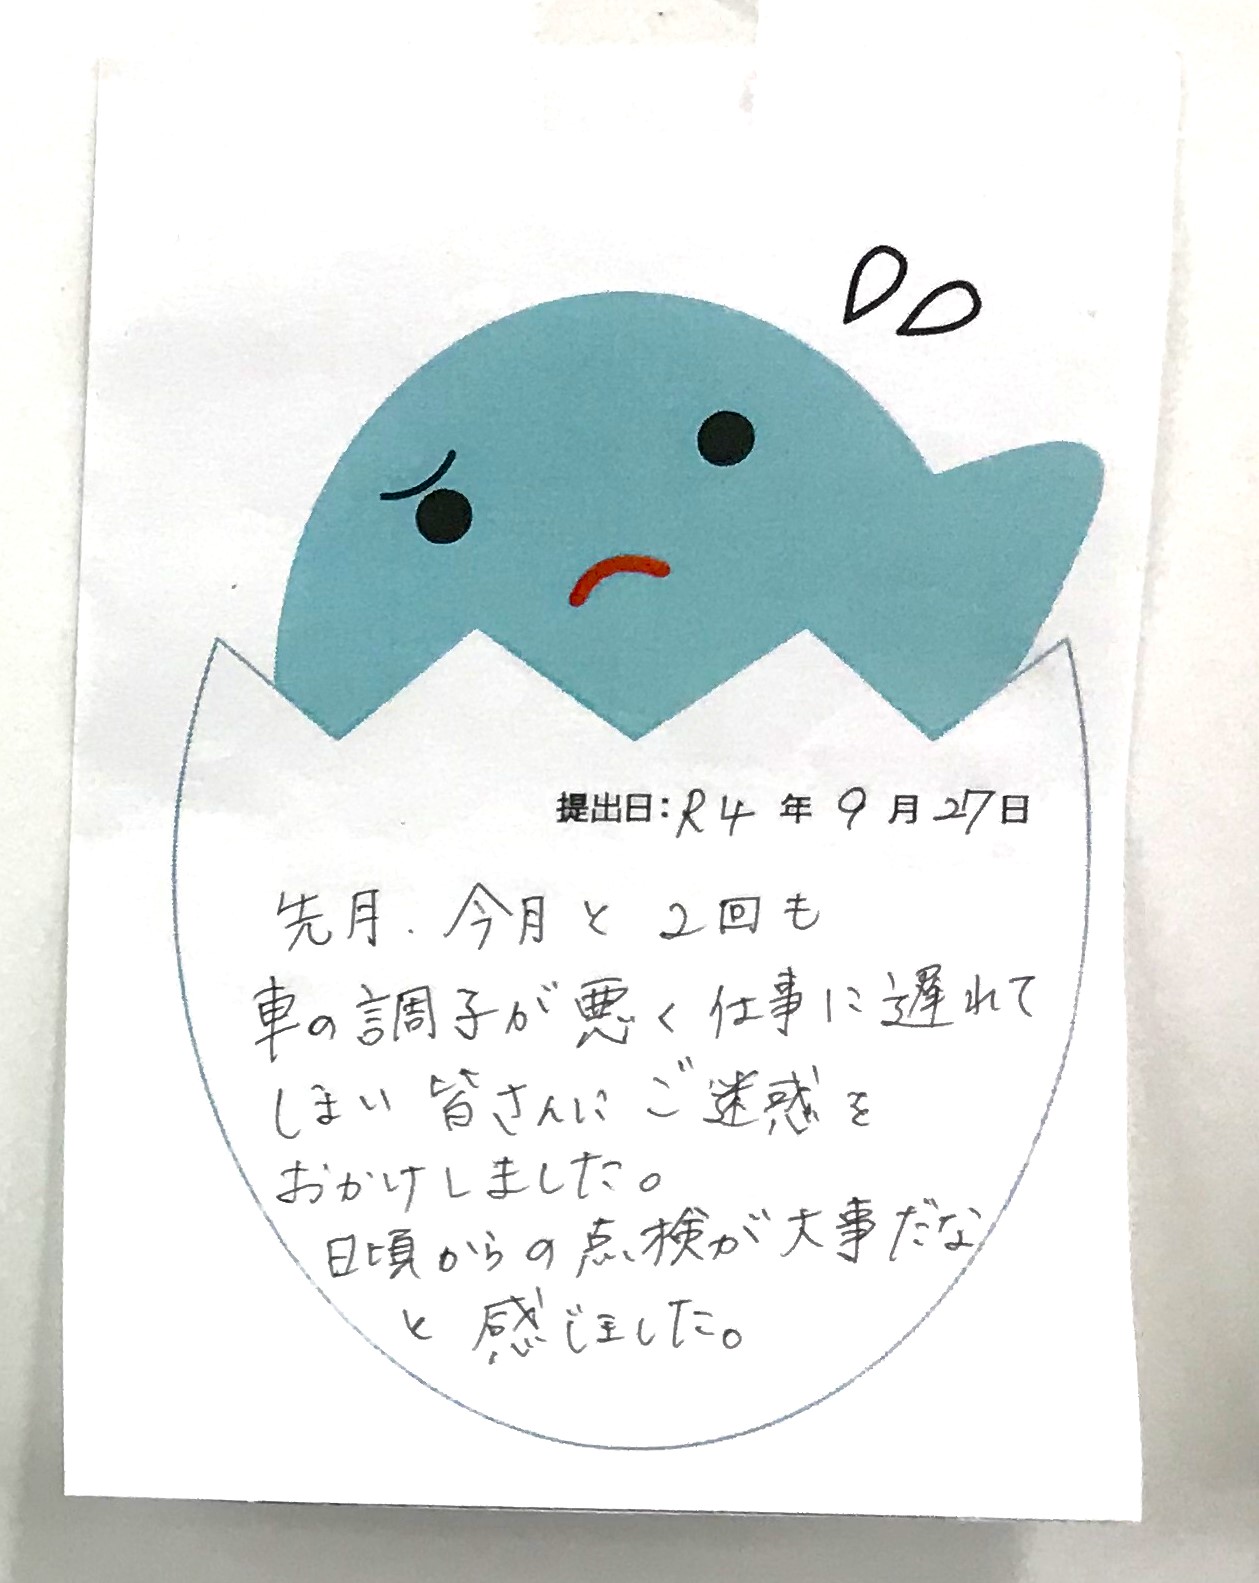 提出日：R4年9月27日
先月．今月と2回も
車の調子が悪く仕事に遅れて
しまい皆さんにご迷惑を
おかけしました。
日頃からの点検が大事だな
と感じました。